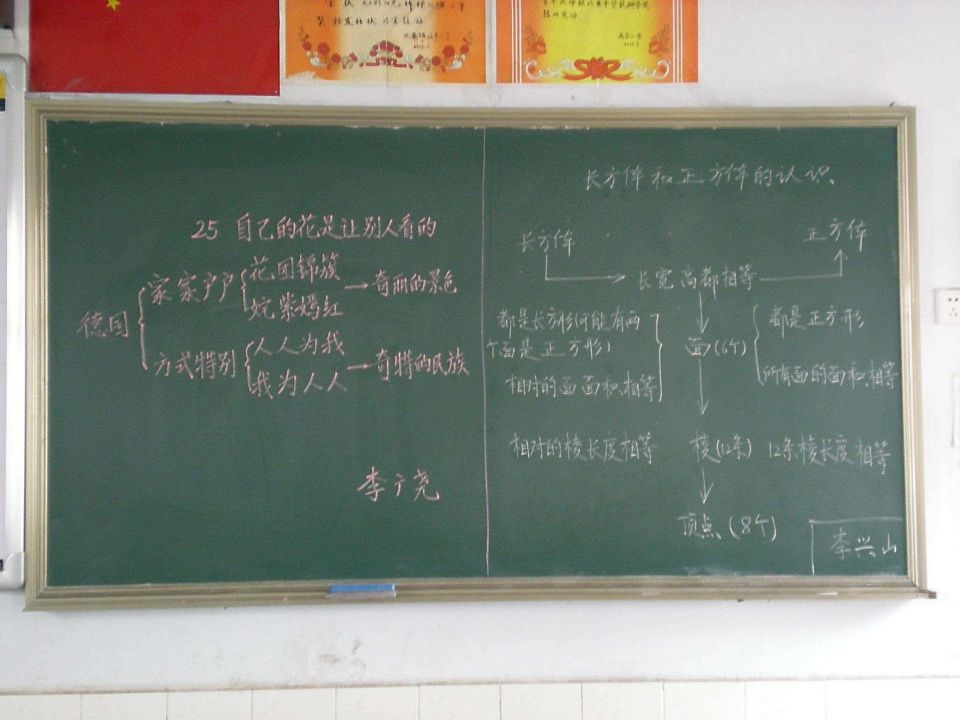 25 自己的花是让别人看的
德国
家家户户
花团锦簇
姹紫嫣红
→奇丽的景色
方式特别
人人为我
我为人人
→奇特的民族
李广尧
长方体和正方体的认识
长方体
正方体
长宽高都相等
都是长方形(可能有两
个面是正方形)
相对的面面积相等
面(6个)
都是正方形
所有面的面积相等
相对的棱长度相等
棱(12条)
12条棱长度相等
顶点(8个)
李兴山